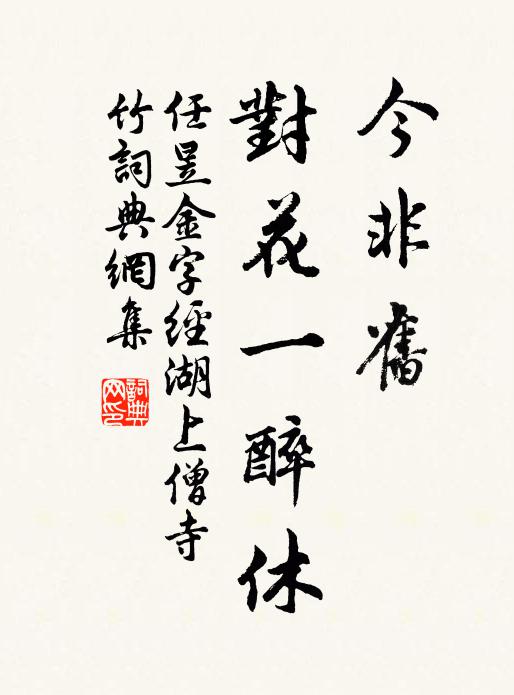 今非舊
對花一醉休
任昱金字經湖上僧寺
竹詞典網集
詞典
网印